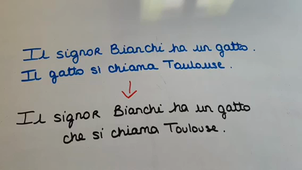 Il signor Bianchi ha un gatto.
Il gatto si chiama Toulouse.
Il signor Bianchi ha un gatto
che si chiama Toulouse.